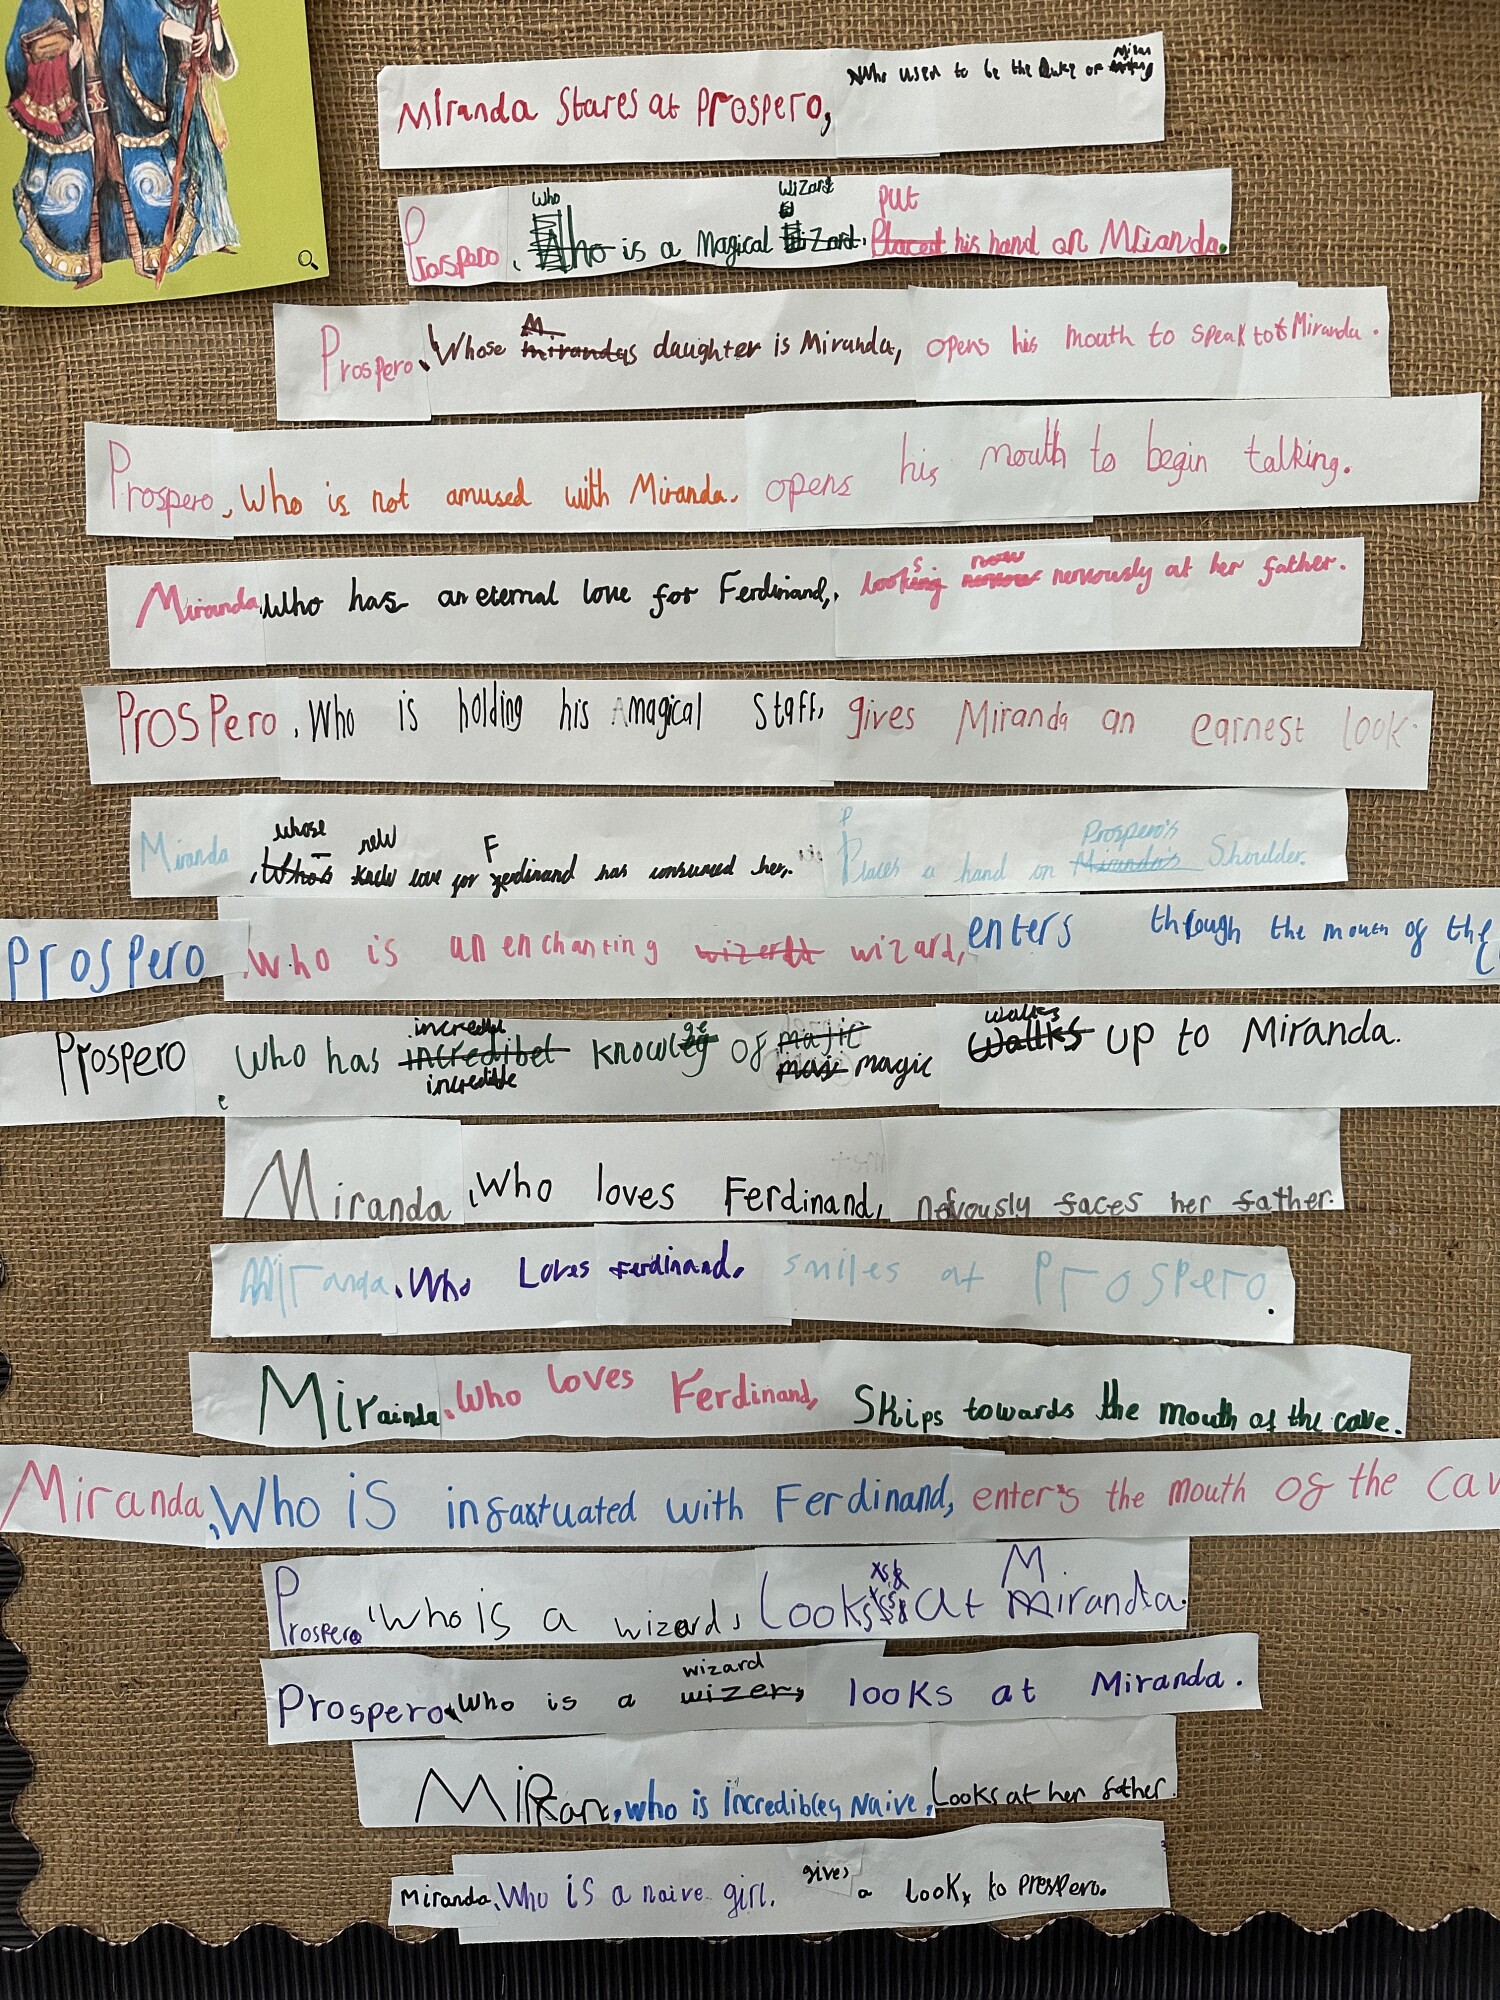 Miranda Stares at Prospero, who used to be the Duke of Milan
Prospero, who is a magical wizard. put his hand on Mrianda.
Prospero, Whose daughter is Miranda, opens his mouth to speak to Miranda.
Prospero, who is not amused with Miranda. opens his mouth to begin talking.
Miranda, who has an eternal love for Ferdinand, looks nervously at her father.
Prospero, Who is holding his magical Staff, gives Miranda an earnest look.
Miranda, whose new love for Ferdinand has consumed her, Places a hand on Prospero's Shoulder.
Prospero, who is an enchanting wizard, enters through the mouth of the
Prospero, who has incredible knowledge of magic walks up to Miranda.
Miranda, who loves Ferdinand, nervously faces her father.
Miranda, Who Loves ferdinand, smiles at Prospero.
Mirainda, who loves Ferdinand, Skips towards the mouth of the cave.
Miranda, Who is infaxtuated with Ferdinand, enters the mouth of the cav
Prospero, who is a wizard, Looks at Miranda.
Prospero, who is a wizard looks at Miranda.
who is incredibley Naive, Looks at her father.
Miranda, Who is a naive girl. gives a look to prespero.